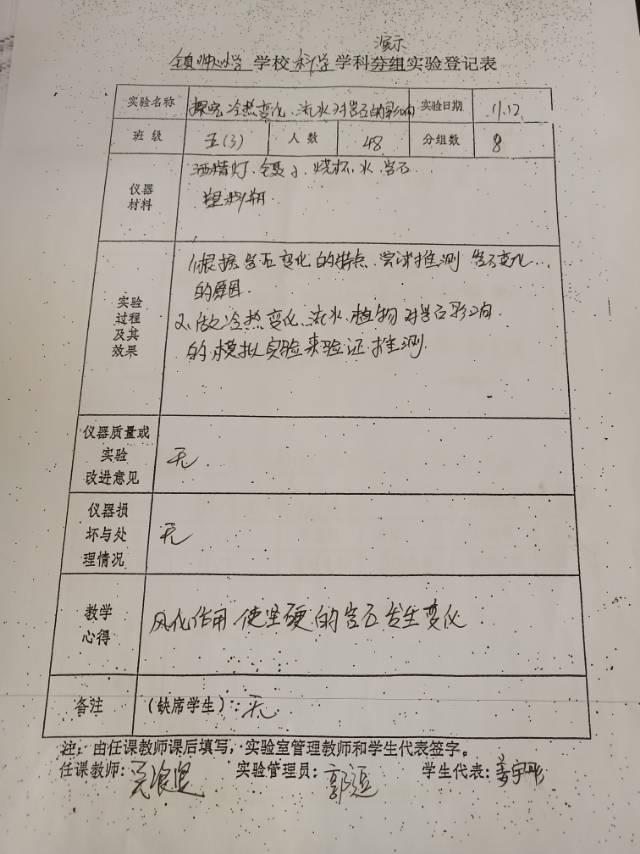 演示
学校 科学 学科分组实验登记表
实验名称 探究冷热变化、流水对岩石的影响 实验日期 11.12
班 级 五(3) 人 数 48 分组数 8
仪器材料
酒精灯、镊子、烧杯、水、岩石
塑料瓶
实验过程及其效果
1、根据岩石变化的特点、尝试推测 岩石变化
的原因.
2、做冷热变化、流水、植物对岩石影响
的模拟实验来验证推测.
仪器质量或实验改进意见 无
仪器损坏与处理情况 无
教学心得 风化作用使坚硬的岩石发生变化
备注 (缺席学生):无
注:由任课教师课后填写,实验室管理教师和学生代表签字。
任课教师: 实验管理员: 学生代表: